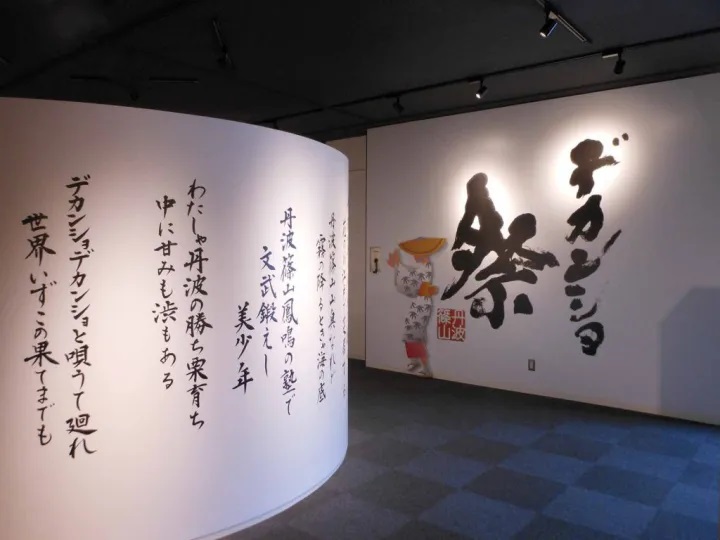 デカンショ
祭
丹波
篠山
丹波篠山山奥なれど
霧の降るときゃ海の底
丹波篠山鳳鳴の塾で
文武鍛えし
美少年
わたしゃ丹波の勝ち栗育ち
中に甘みも渋もある
デカンショデカンショと唄うて廻れ
世界いずこの果てまでも